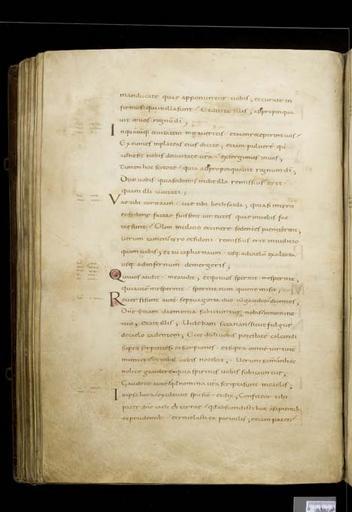 manducate quae apponuntur uobis; et curate in
firmos qui in illa sunt; Et dicite illis; adpropinqua
uit in uos regnum di;
In quacumq; ciuitatem intraueritis et non receperint uos;
Exeuntes in plateas eius dicite; etiam puluerem qui
adhesit nobis de ciuitate uestra extergimus in uos;
Tamen hoc scitote quia adpropinquauit regnum di;
Dico uobis quia sodomis in die illa remissius erit
quam illi ciuitati;
Vae tibi corozain uae tibi bethsaida; quia si in tyro
et sidone factae fuissent uirtutes quae in uobis fac
tae sunt; Olim in cilicio et cinere sedentes paeniterent;
Uerum tamen tyro et sidoni remissius erit in iudicio
quam uobis; et tu capharnaum usq; ad caelum exaltata
usq; ad infernum demergeris;
Qui uos audit me audit; et qui uos spernit me spernit;
qui autem me spernit spernit eum qui me misit;
Reuersi sunt autem septuaginta duo cum gaudio dicentes;
Dne etiam daemonia subiciuntur nobis in nomine
tuo; et ait illis; Uidebam satanan sicut fulgur
de caelo cadentem; Ecce dedi uobis potestatem calcandi
supra serpentes et scorpiones et supra omnem uirtutem
inimici et nihil uobis nocebit; Uerum tamen in hoc
nolite gaudere quia spiritus uobis subiciuntur;
Gaudete autem quod nomina uestra scripta sunt in caelis;
In ipsa hora exultauit spu sco et dixit; Confiteor tibi
pater dne caeli et terrae quod abscondisti haec a sapientib;
et prudentib; et reuelasti ea paruulis; etiam pater